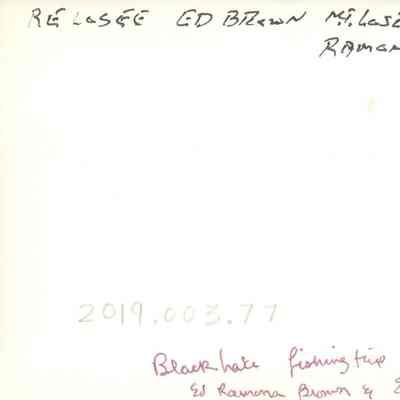 RÉ LaSÉE ED BROWN MT. LaSÉ
RAMON
2019.003.77
Black lake fishing trip
Ed Ramona Brown &